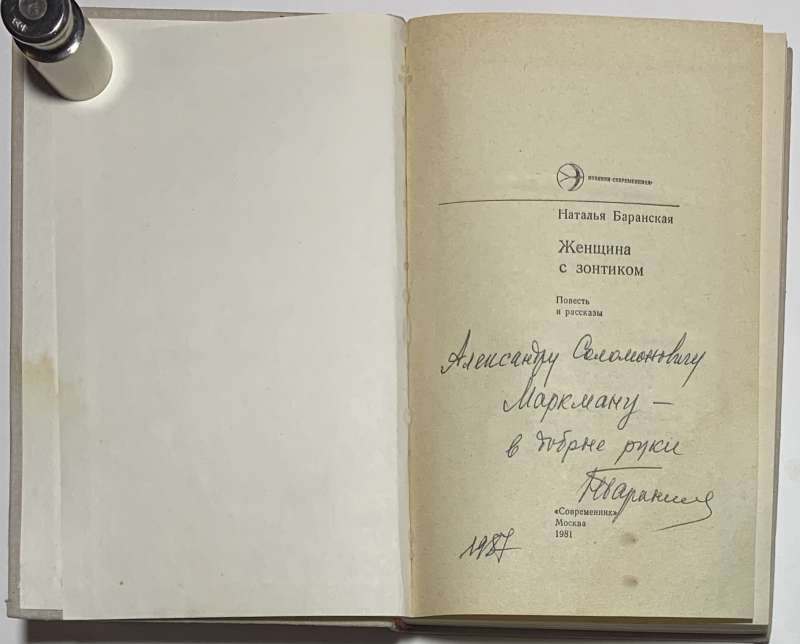 НОВИНКИ «СОВРЕМЕННИКА»
Наталья Баранская
Женщина
с зонтиком
Повесть
и рассказы
Александру Соломоновичу
Маркману —
в добрые руки
НБаранская
«Современник»
Москва
1981
1987